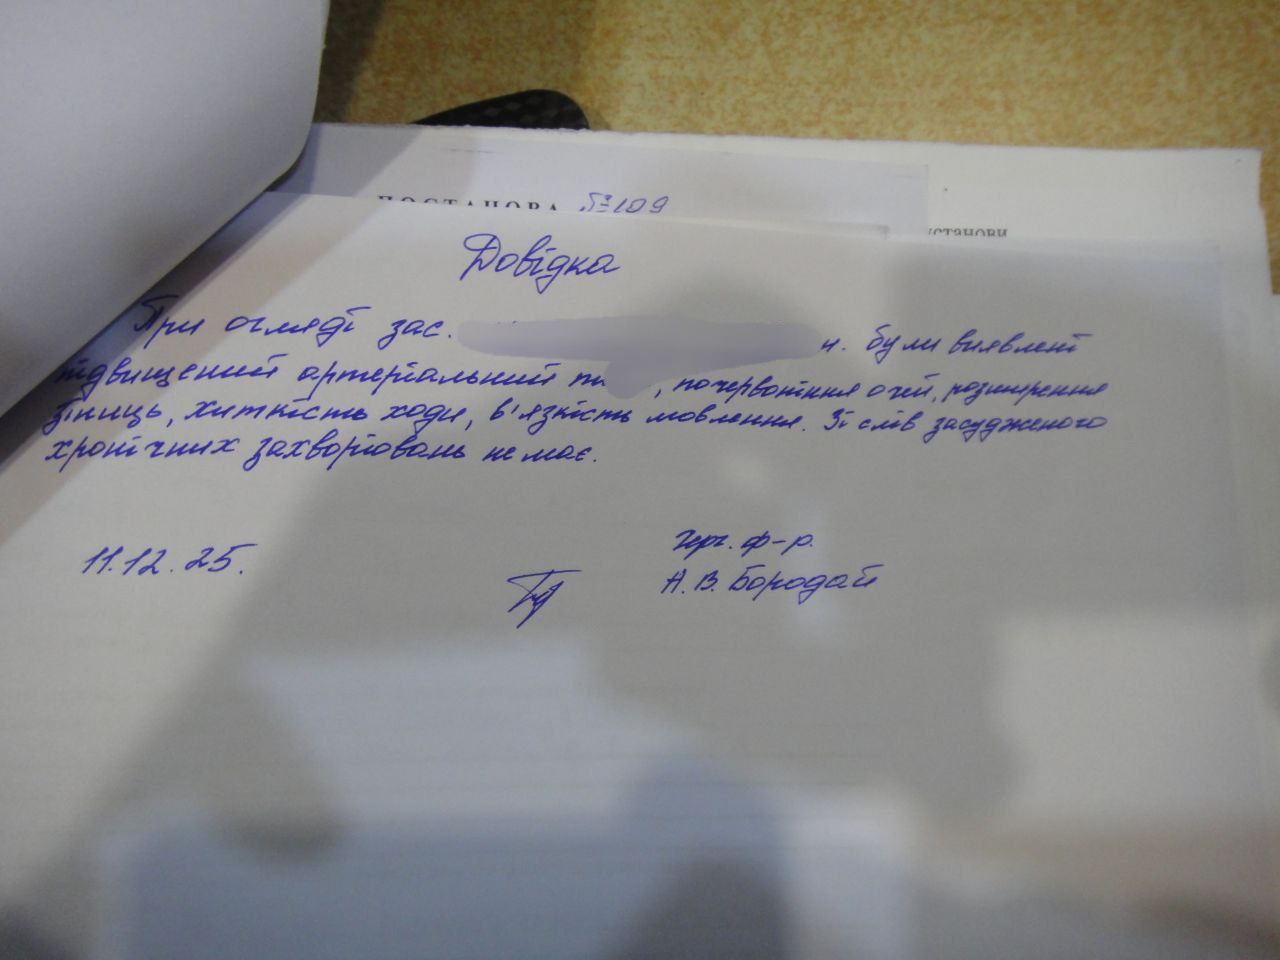 ПОСТАНОВА №109
установи
Довідка
При огляді зас. н. були виявлені
підвищений артеріальний , почервоніння очей, розширення
зіниць, хиткість ходи, в'язкість мовлення. Зі слів засудженого
хронічних захворювань немає.
11.12.25.
Черг. ф-р.
А.В. Бородай